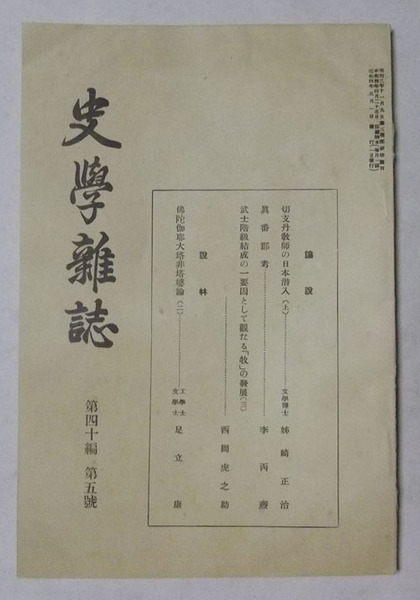 史學雜誌
第四十編 第五號
論說
切支丹敎師の日本潜入（上） 文學博士 姊崎正治
眞番郡考 李丙燾
武士階級結成の一要因として觀たる「牧」の發展（三） 西岡虎之助
說林
佛陀伽耶大塔非塔婆論（二） 工學士 文學士 足立康